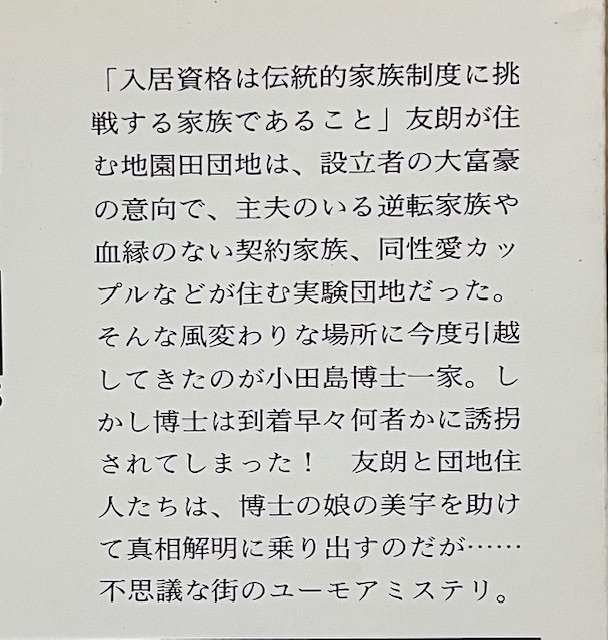 「入居資格は伝統的家族制度に挑
戦する家族であること」友朗が住
む地園田団地は、設立者の大富豪
の意向で、主夫のいる逆転家族や
血縁のない契約家族、同性愛カッ
プルなどが住む実験団地だった。
そんな風変わりな場所に今度引越
してきたのが小田島博士一家。し
かし博士は到着早々何者かに誘拐
されてしまった！　友朗と団地住
人たちは、博士の娘の美宇を助け
て真相解明に乗り出すのだが……
不思議な街のユーモアミステリ。